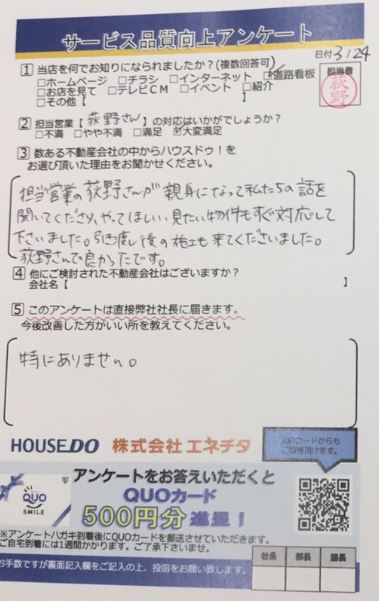 サービス品質向上アンケート
日付 3/24
1 当店を何でお知りになられましたか？(複数回答可)
□ホームページ □チラシ □インターネット ☑道路看板
□お店を見て □テレビCM □イベント □紹介
□その他【 】
担当者
荻野
2 担当営業【荻野さん】の対応はいかがでしょうか？
□不満 □やや不満 □満足 ☑大変満足
3 数ある不動産会社の中からハウスドゥ！を
お選び頂いた理由をお聞かせください。
担当営業の荻野さんが親身になって私たちの話を
聞いてくださり、やってほしい、見たい物件もすぐ対応して
下さいました。引き渡し後の施工も来てくださいました。
荻野さんで良かったです。
4 他にご検討された不動産会社はございますか？
会社名【 】
5 このアンケートは直接弊社社長に届きます。
今後改善した方がいい所を教えてください。
特にありません。
HOUSEDO 株式会社 エネチタ
QRコードからも
ご回答頂けます。
QUO
SMILE
アンケートをお答えいただくと
QUOカード
500円分進呈！
※アンケートハガキ到着後にQUOカードを郵送させていただきます。
ご自宅到着には1週間かかります。ご了承下さいませ。
お手数ですが裏面記入欄をご記入の上、投函をお願い致します。
社長 部長 店長